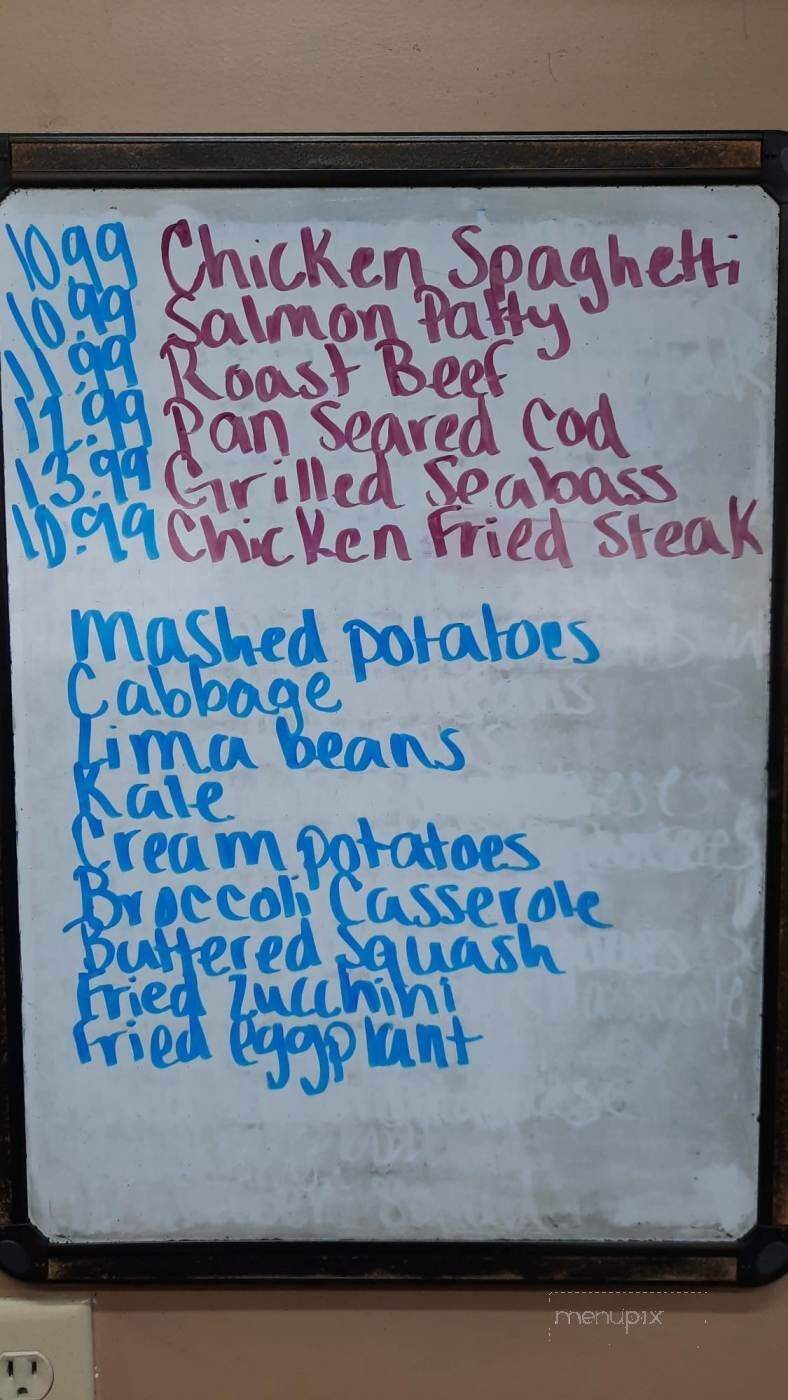 10.99 Chicken Spaghetti
10.99 Salmon Patty
11.99 Roast Beef
Pan Seared Cod
13.99 Grilled Seabass
10.99 Chicken Fried Steak
Mashed potatoes
Cabbage
Lima beans
Kale
Cream potatoes
Broccoli Casserole
Buttered Squash
Fried Zucchini
Fried eggplant
menupix